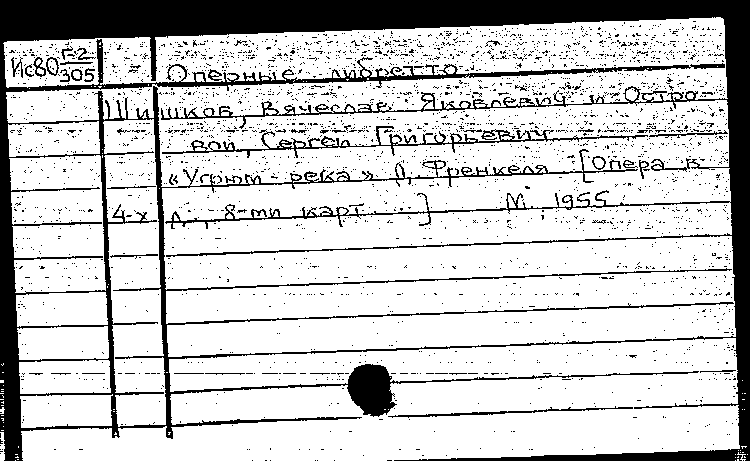 Ис80 Г-2/305
Оперные либретто
Шишков, Вячеслав Яковлевич и Остро-
вой, Сергей Григорьевич
«Угрюм-река» Д. Френкеля [Опера в
4-х д., 8-ми карт...] М., 1955.